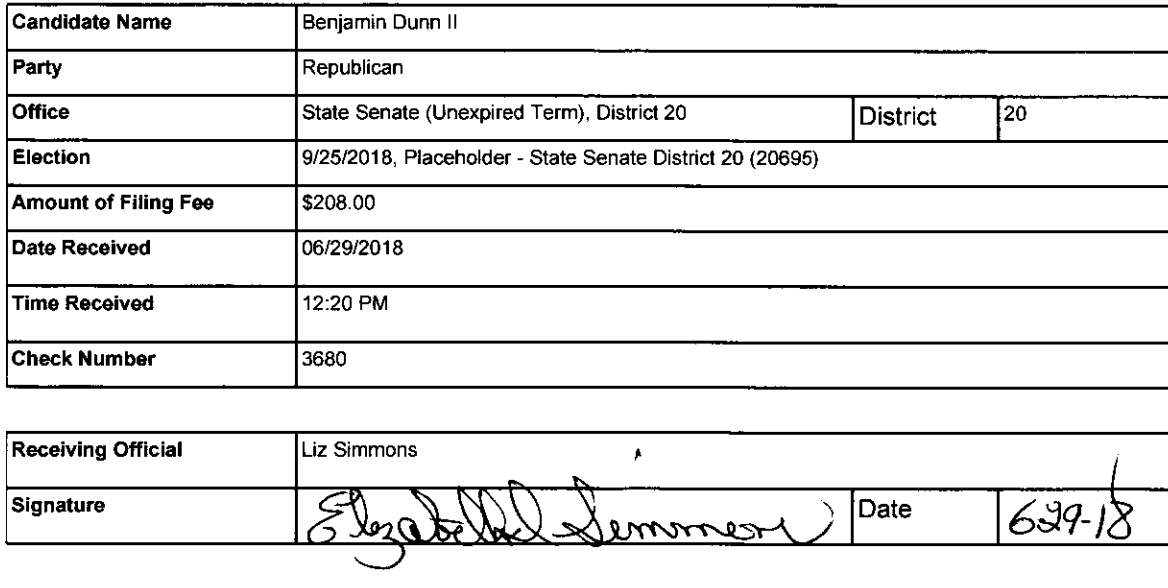 Candidate Name Benjamin Dunn II
Party Republican
Office State Senate (Unexpired Term), District 20 District 20
Election 9/25/2018, Placeholder - State Senate District 20 (20695)
Amount of Filing Fee $208.00
Date Received 06/29/2018
Time Received 12:20 PM
Check Number 3680
Receiving Official Liz Simmons
Signature Elizabeth Simmons Date 6-29-18